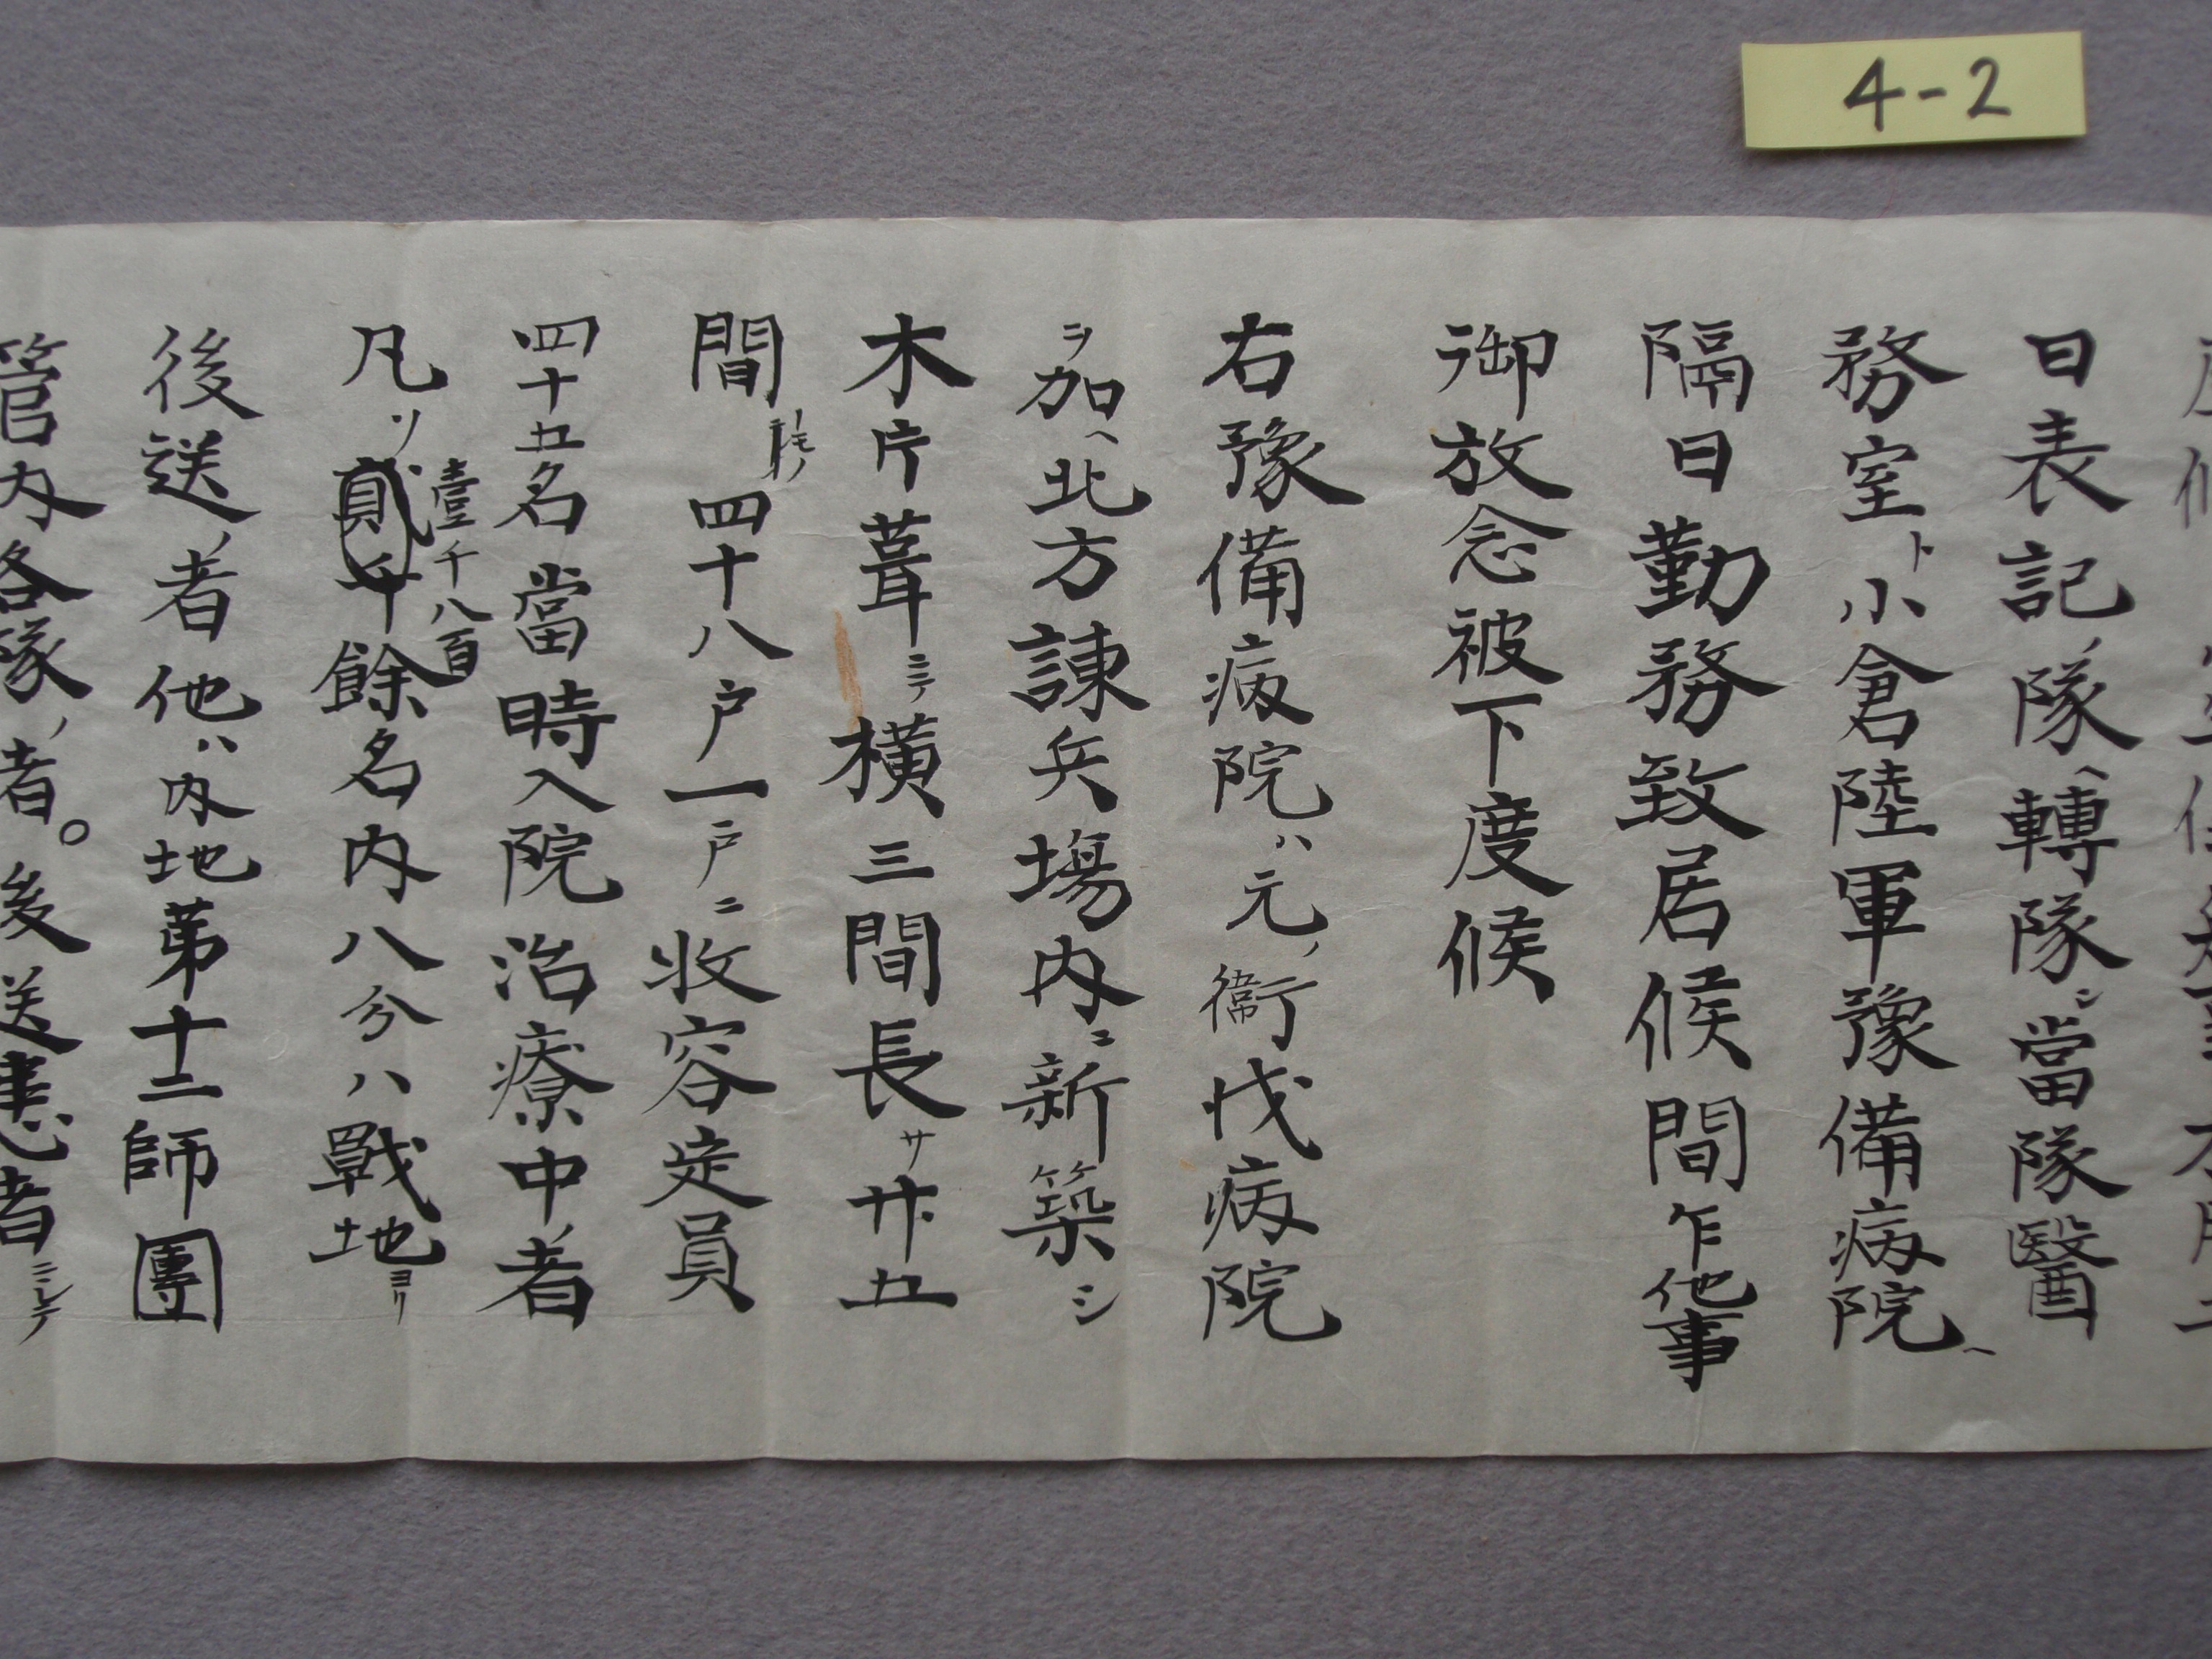 4-2
日表記ノ隊ヘ轉隊シ當隊醫
務室ト小倉陸軍豫備病院ヘ
隔日勤務致居候間乍他事
御放念被下度候
右豫備病院ハ元ノ衞戍病院
ヲ加ヘ北方諫兵場内ニ新築シ
木片葺ニテ横三間長サ廾五
間 四十八戸一戸ニ收容定員
四十五名當時入院治療中ノ者
凡ソ貳千餘名内八分ハ戰地ヨリ
壹千八百
後送ノ者他ハ内地第十二師團
管内各隊ノ者。後送患者ニシテ